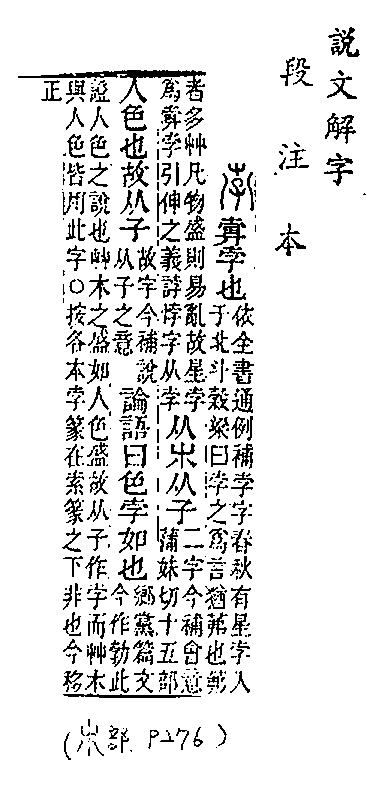 說文解字
段注本
孛 𡴆孛也 依全書通例補孛字春秋有星孛入
于北斗穀梁曰孛之爲言猶茀也茀
者多艸凡物盛則易亂故星孛
爲𡴆孛引伸之義誖悖字从孛 从𣎵从子 二字今補會意
蒲妹切十五部
人色也故从子 故字今補說
从子之意 論語曰色孛如也 鄉黨篇文
今作勃此
證人色之說也艸木之盛如人色盛故从子作字而艸木
與人色皆用此字○按各本孛篆在索篆之下非也今移
正
(𣎵部 P276)